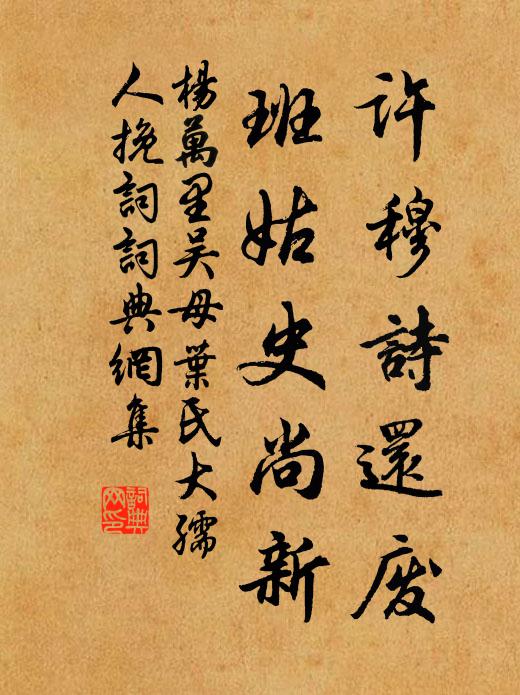 許穆詩還废
班姑史尚新
楊萬里吴母葉氏大孺
人挽詞詞典網集
詞典网印